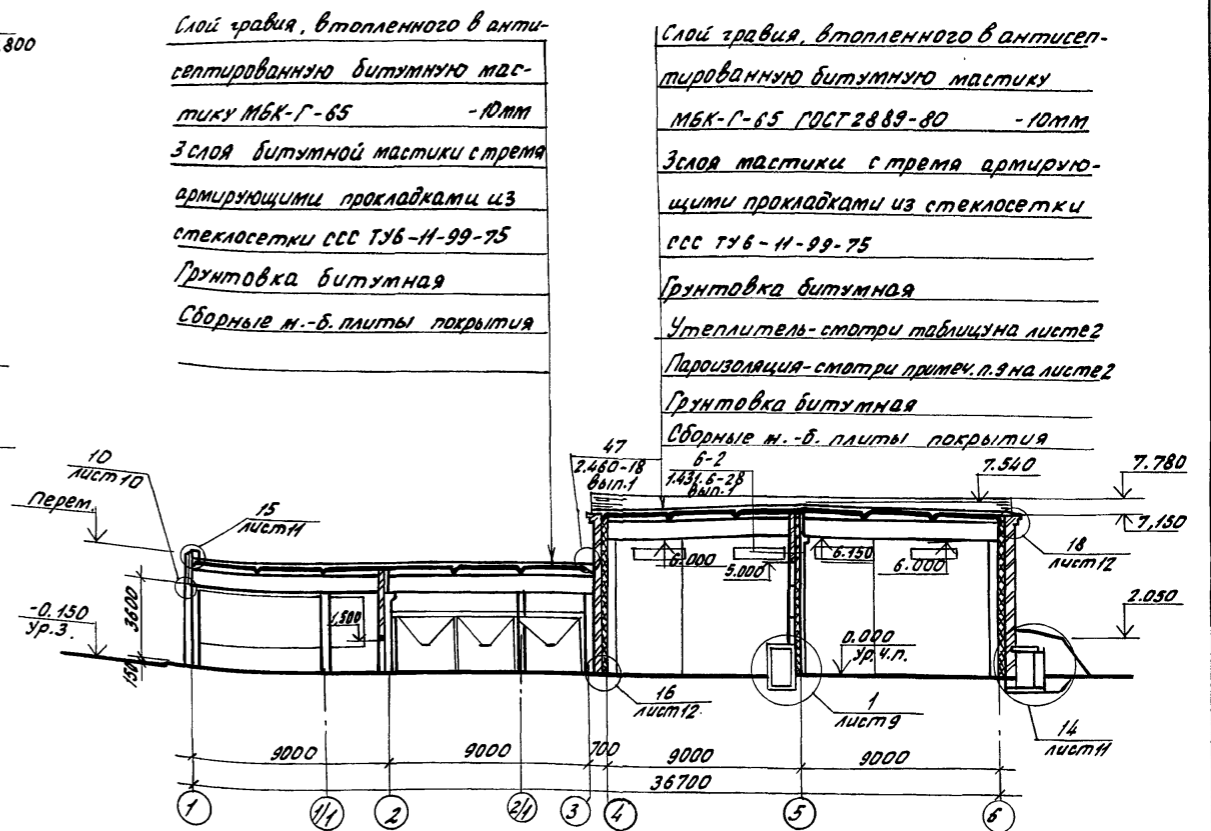 .800
Слой гравия, втопленного в анти-
септированную битумную мас-
тику МБК-Г-65 -10мм
3 слоя битумной мастики с тремя
армирующими прокладками из
стеклосетки ССС ТУ6-11-99-75
Грунтовка битумная
Сборные ж.-б. плиты покрытия
Слой гравия, втопленного в антисеп-
тированную битумную мастику
МБК-Г-65 ГОСТ 2889-80 -10мм
3 слоя мастики с тремя армирую-
щими прокладками из стеклосетки
ССС ТУ6-11-99-75
Грунтовка битумная
Утеплитель-смотри таблицу на листе 2
Пароизоляция-смотри примеч. п.9 на листе 2
Грунтовка битумная
Сборные ж.-б. плиты покрытия
10
лист 10
Перем.
15
лист 11
47
2.460-18
вып.1
6-2
1.431.6-28
вып.1
7.540
7.780
7,150
18
лист 12
6.000
5.000
6.150
6.000
2.050
-0.150
Ур.З.
3600
150
1,500
0.000
Ур.Ч.П.
16
лист 12
1
лист 9
14
лист 11
9000
9000
700
9000
9000
36700
1
1/1
2
2/1
3
4
5
6